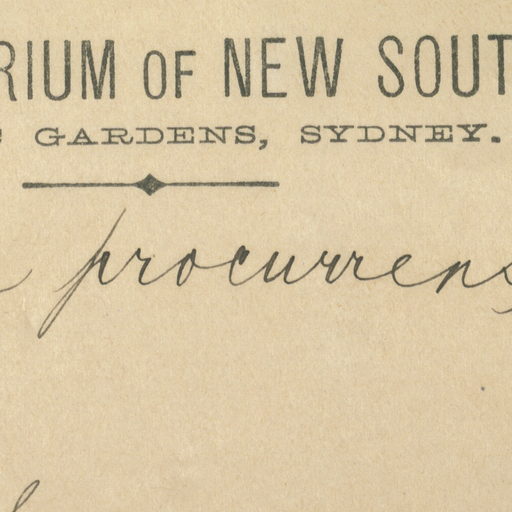 RIUM OF NEW SOUT
GARDENS, SYDNEY.
procurrens